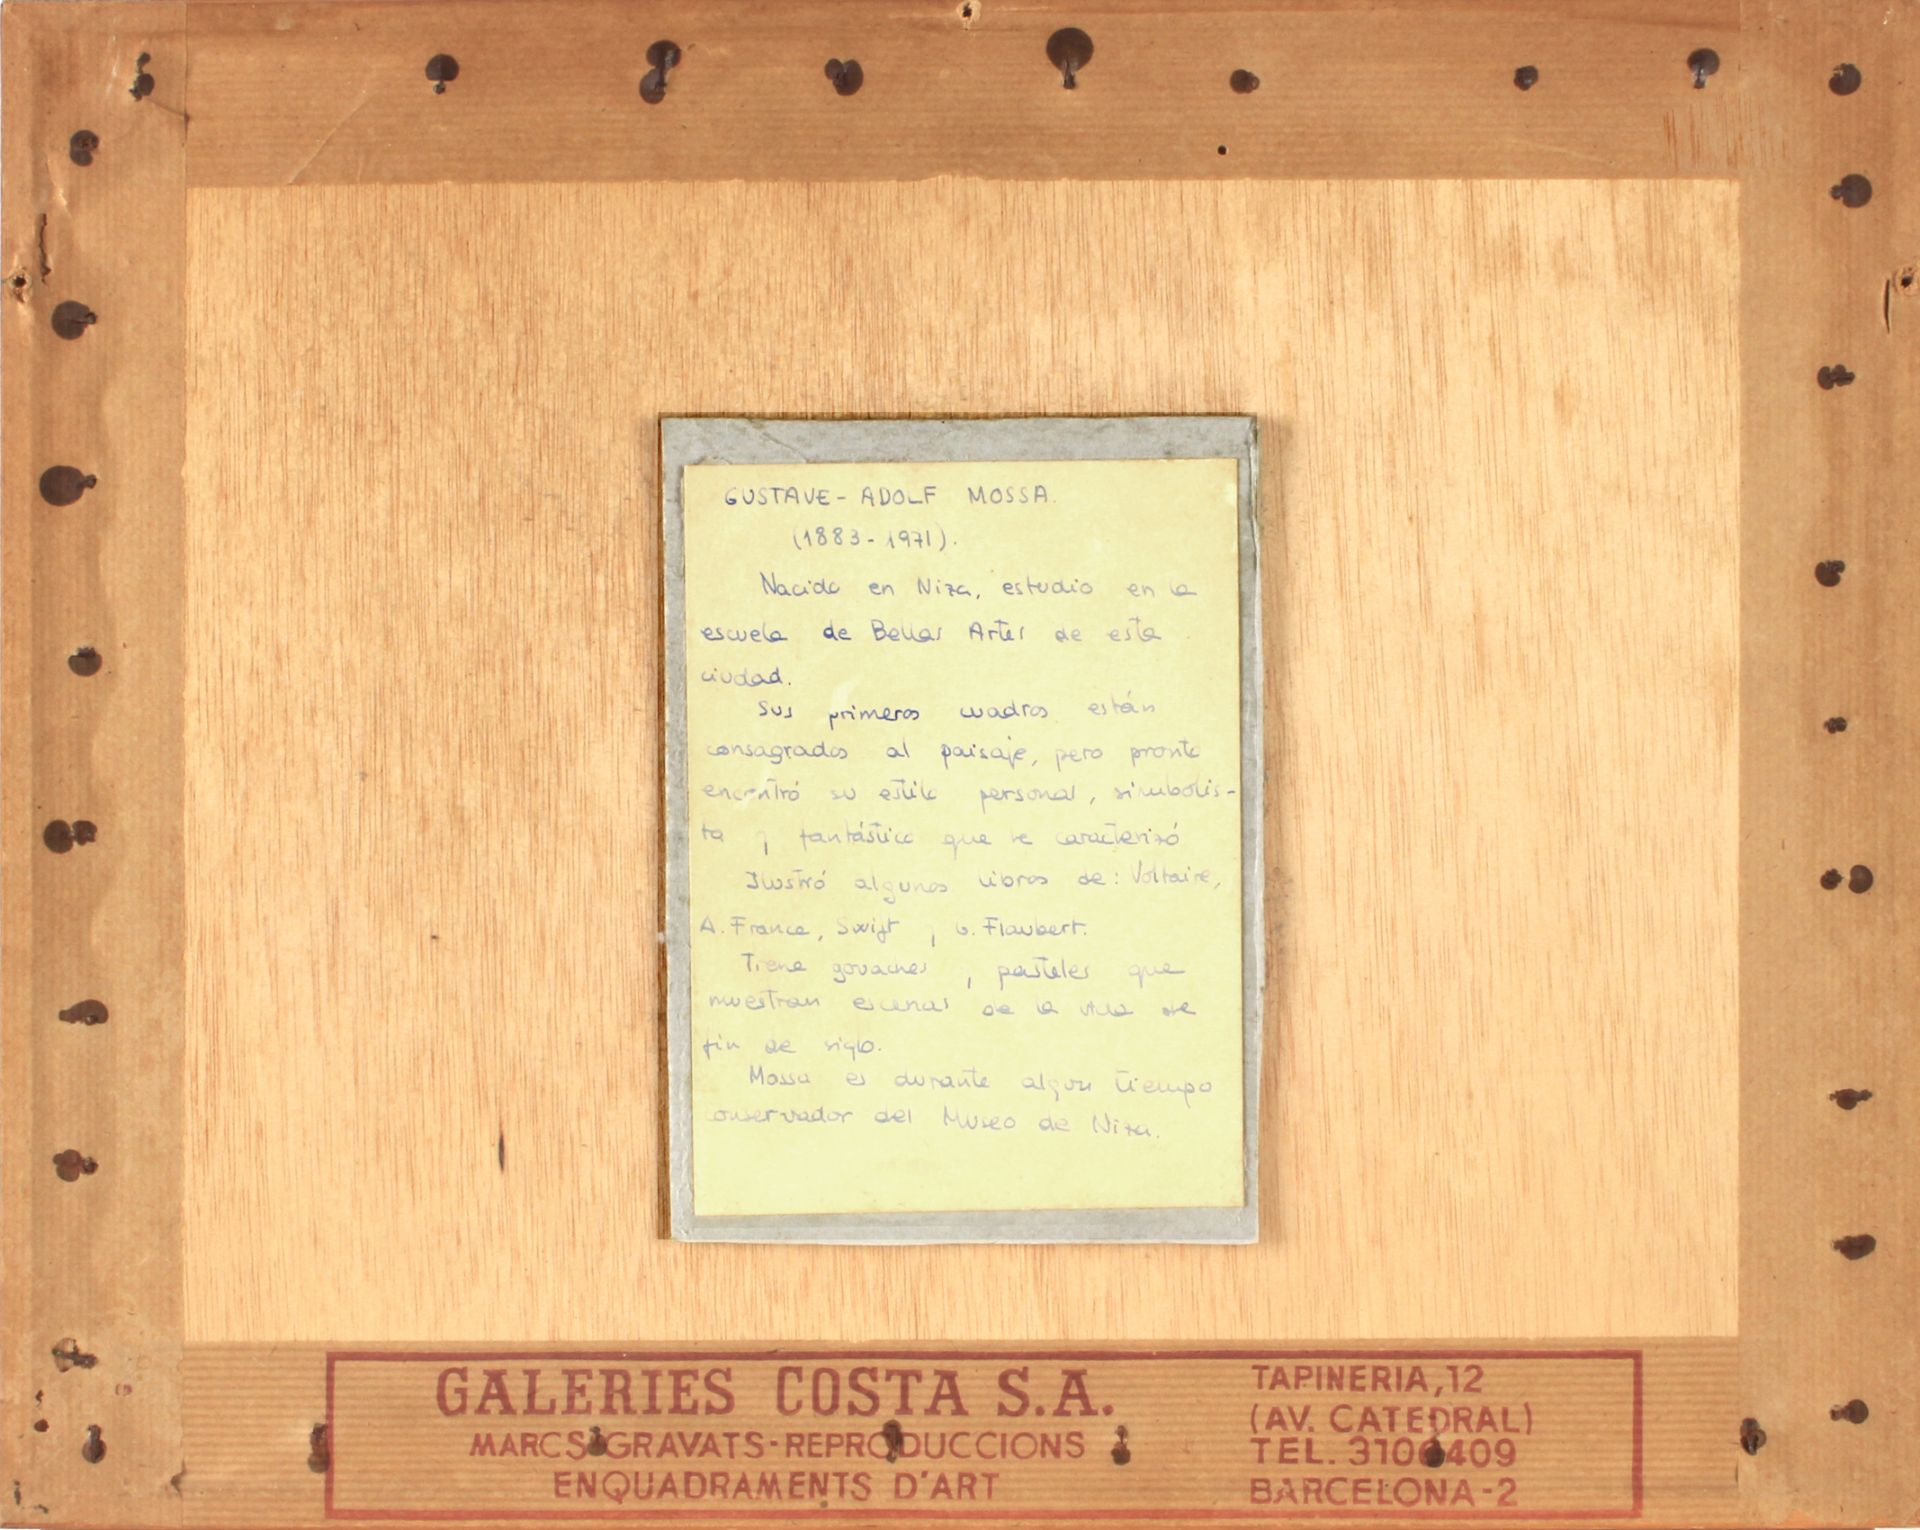 GUSTAVE-ADOLF MOSSA.
(1883-1971).
Nacido en Niza, estudio en la
escuela de Bellas Artes de esta
ciudad.
Sus primeros cuadros están
consagrados al paisaje, pero pronto
encontró su estilo personal, simbolis-
ta y fantástico que le caracterizó
Ilustró algunos libros de: Voltaire,
A. France, Swift y G. Flaubert.
Tiene gouaches y pasteles que
muestran escenas de la vida de
fin de siglo.
Mossa es durante algun tiempo
conservador del Museo de Niza.
GALERIES COSTA S.A.
MARCS-GRAVATS-REPRODUCCIONS
ENQUADRAMENTS D'ART
TAPINERIA,12
(AV. CATEDRAL)
TEL. 3106409
BARCELONA-2